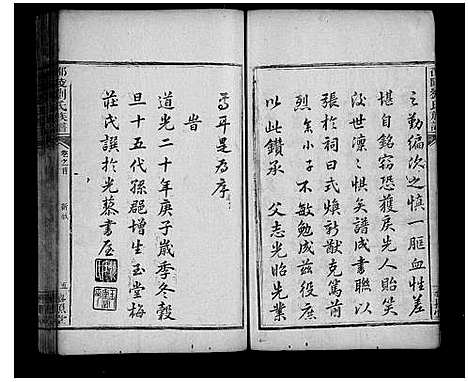 之勤編次之慎一腔血性差
堪自銘竊恐獲戾先人貽笑
後世懍之惧矣譜成書聯以
張於祠曰式煥新猷克篤前
烈余小子不敏勉成茲役庶
以此鑽承父志光昭先業
焉耳是為序
旹
道光二十年庚子歲季冬穀
旦十五代孫郡增生玉堂梅
莊氏譔於光藜書屋
邵陵劉氏族譜
卷之首
五